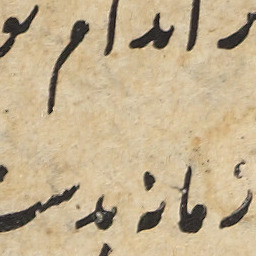 اندام تو
زمانه بدست